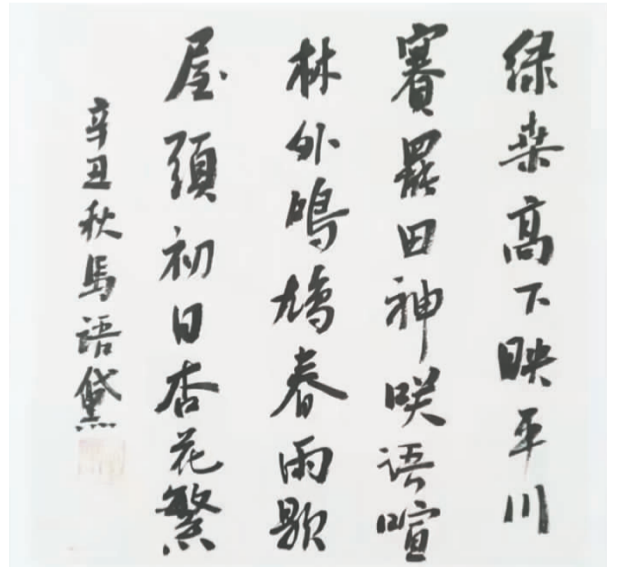 绿桒高下映平川
賽罷田神咲语喧
林外鳴鳩春雨歇
屋頭初日杏花繁
辛丑秋馬語黛